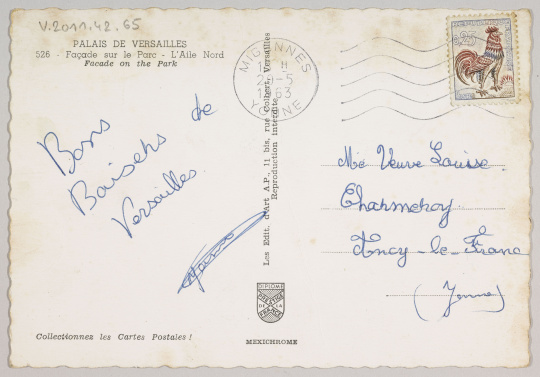 V.2011.42.65
PALAIS DE VERSAILLES
526 - Façade sur le Parc - L'Aile Nord
Facade on the Park
Bons
Baisers de
Versailles
Collectionnez les Cartes Postales !
Les Edit. d'Art A.P., 11 bis, rue Colbert, Versailles
Reproduction interdite
DIPLOME
PRESTIGE
DE LA
FRANCE
MEXICHROME
MIGENNES
H
-5
1963
YONNE
0,25
Me Veuve Louise
Charmeroy
Ancy-le-Franc
(Yonne)